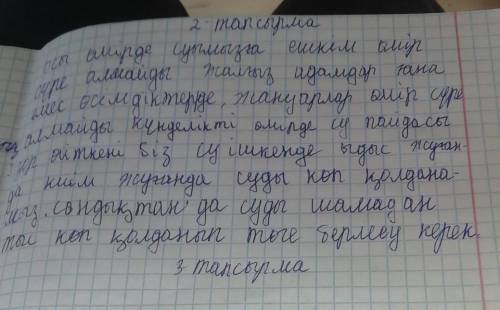 2-тапсырма
осы өмірде сусымызға ешкім өмір
сүре алмайды жалғыз адамдар ғана
емес өсімдіктерде, жануарлар өмір сүре
алмайды күнделікті өмірде су пайдасы
зор өйткені біз су ішкенде ыдыс жуған-
да киім жуғанда суды көп қолдана-
мыз. сондықтан да суды шамадан
тыс көп қолданып төге бермеу керек.
3 тапсырма